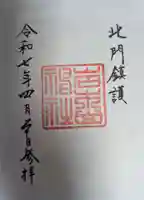 北門鎮護
神社
令和七年四月 日参拝